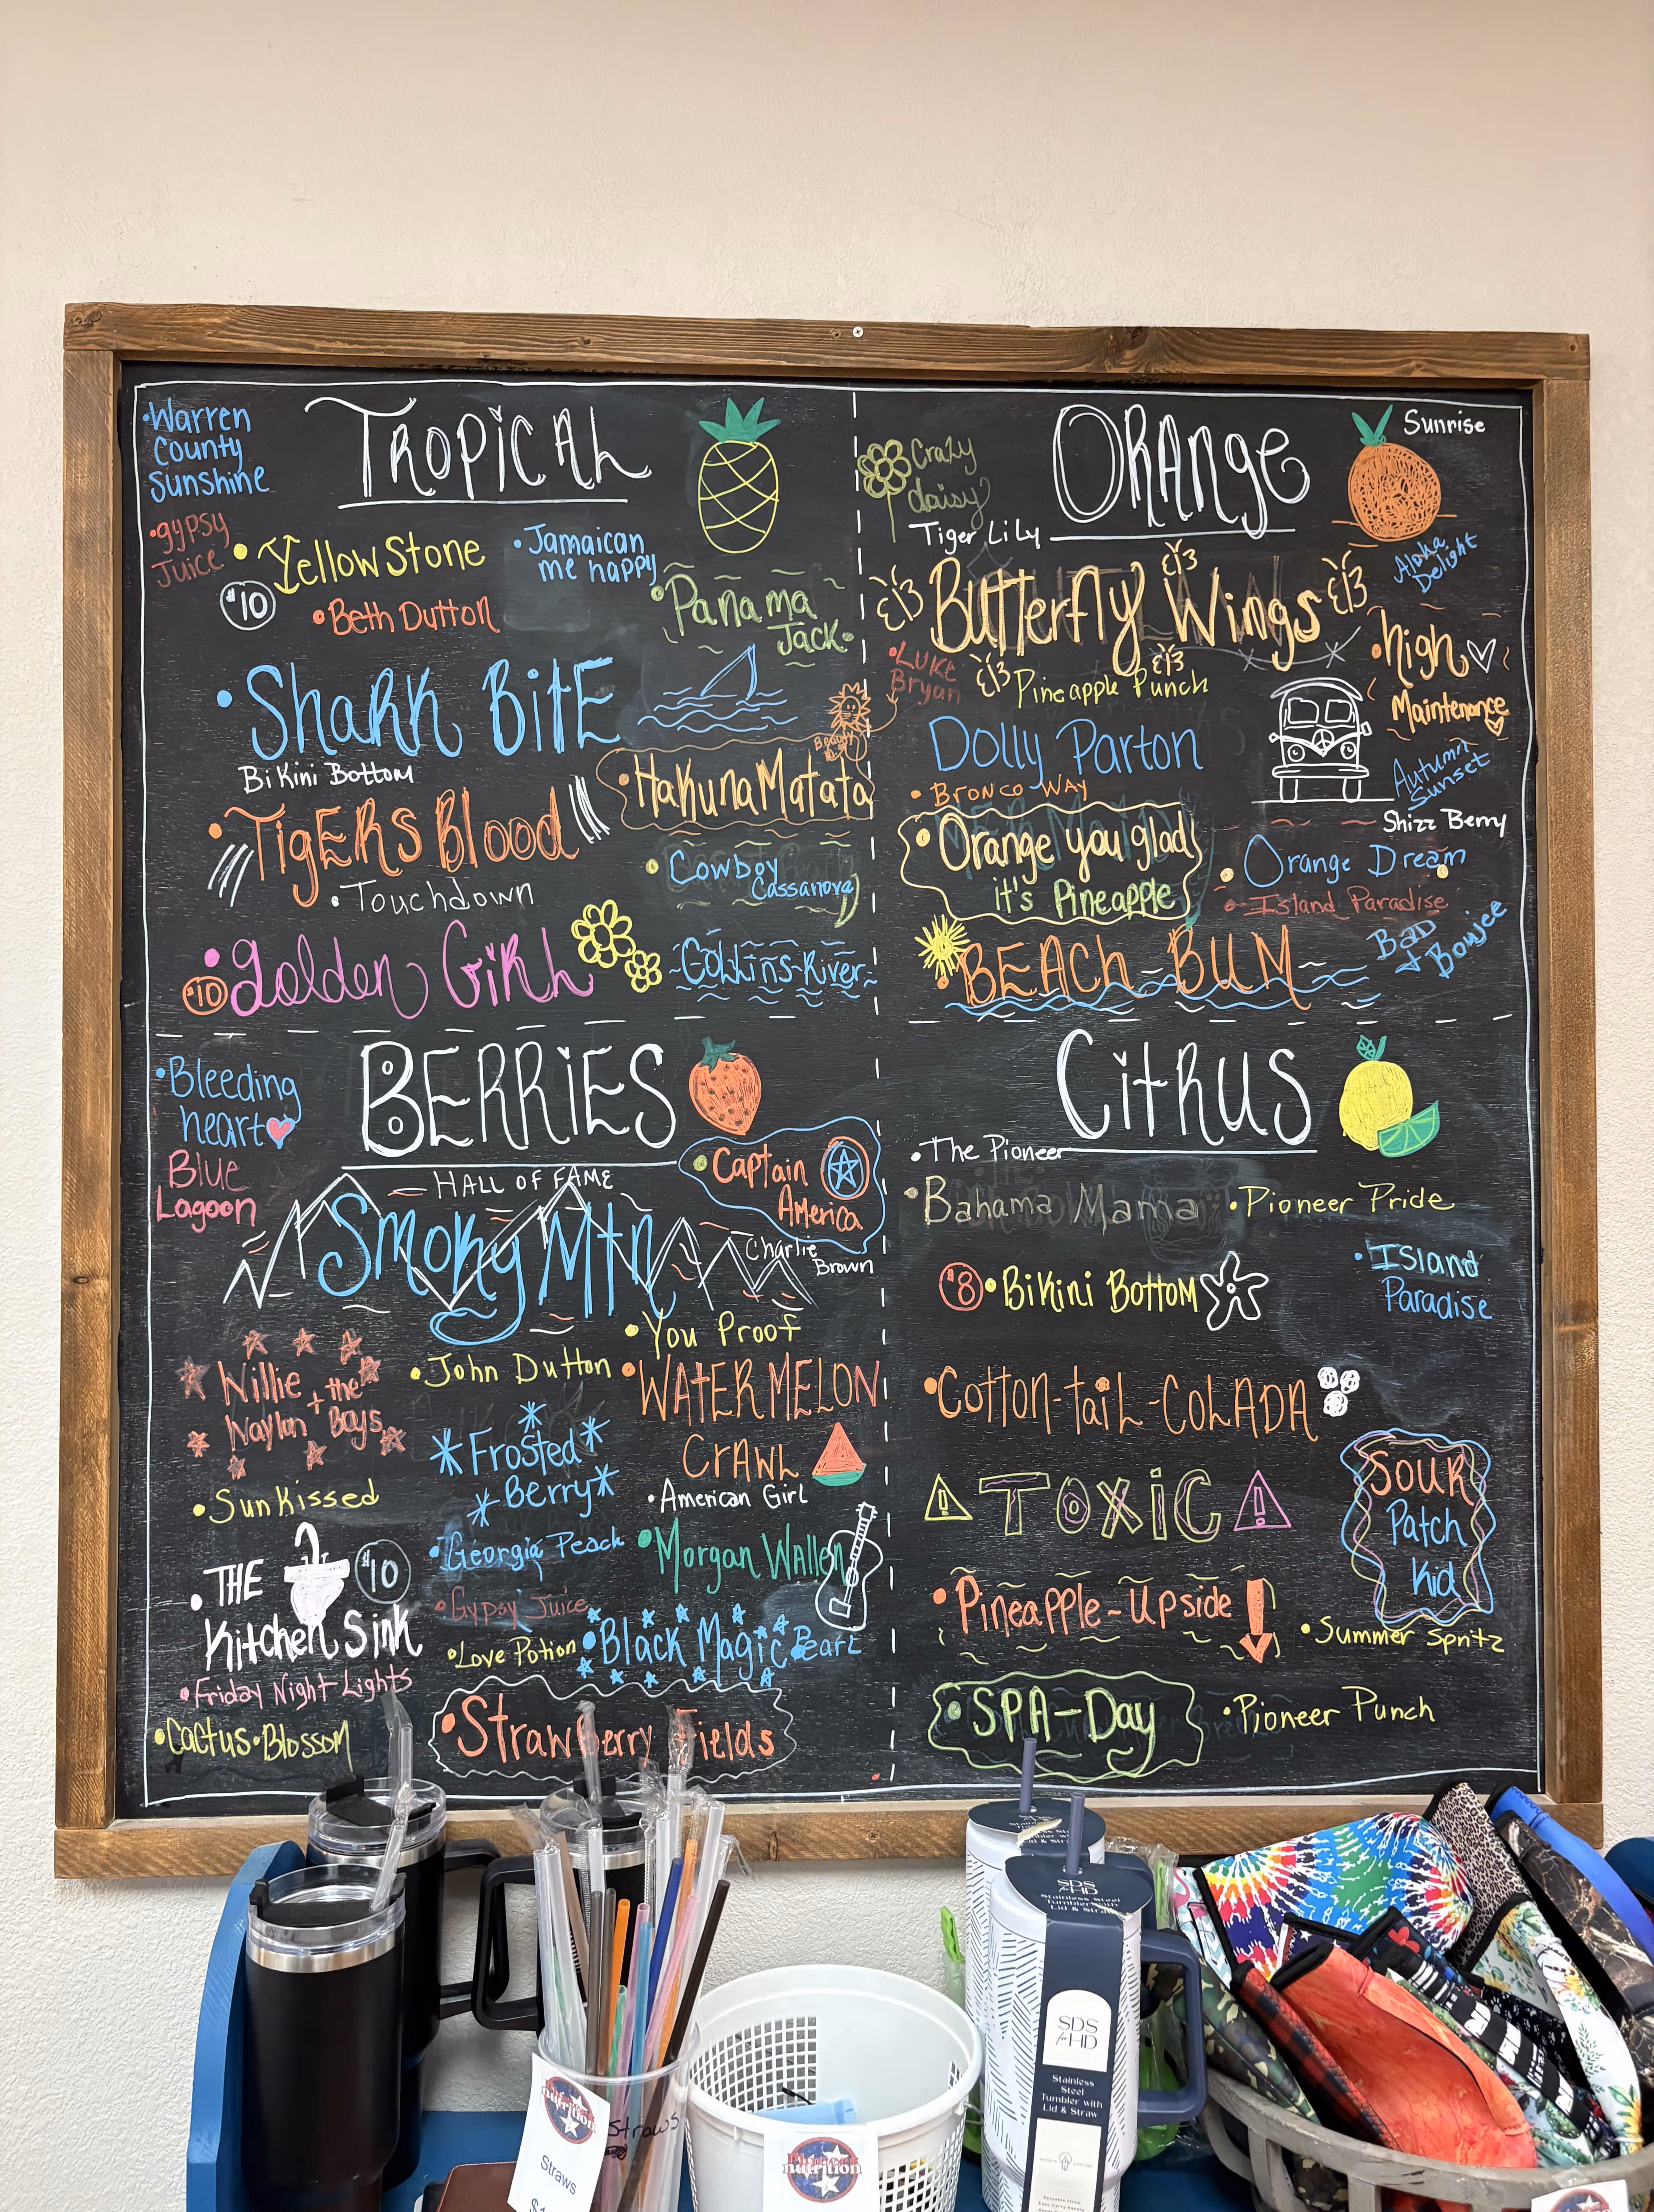 Warren
County
Sunshine
TROPICAL
•gypsy
Juice
•YellowStone
$10
•Jamaican
me happy
•Beth Dutton
•Panama
Jack•
•Shark BitE
Bikini Bottom
•HakunaMatata
•TigERS Blood
•Touchdown
•Cowboy
Cassanova
•golden GiRL
$10
Collins River
Crazy
daisy
ORANge
Sunrise
Tiger Lily
Aloha
Delight
Butterfly Wings
•Luke
Bryan
Pineapple Punch
•High
Maintenance
Dolly Parton
Autumn
Sunset
•Bronco Way
Shizz Berry
•Orange you glad
it's Pineapple
•Orange Dream
•Island Paradise
Bad
+ Boujee
•BEACH BUM
•Bleeding
heart
BERRiES
Blue
Lagoon
HALL OF FAME
•Captain
America
Smoky Mtn
Charlie
Brown
•You Proof
Willie + the
Waylon Boys
•John Dutton
•WATERMELON
CrAWL
Frosted
Berry
•SunKissed
•American Girl
•THE
Kitchen Sink
$10
•Georgia Peach
•Morgan Wallen
•Gypsy Juice
•Love Potion
•Black Magic
•Pearl
•Friday Night Lights
•Cactus•Blossom
•Strawberry Fields
CitRUS
•The Pioneer
•Bahama Mama
•Pioneer Pride
$8
•BiKini BoTToM
•Island
Paradise
•Cotton-taiL-CoLADA
TOXiC
SOUR
Patch
Kid
•Pineapple-Upside
•Summer Spritz
•SPA-Day
•Pioneer Punch
SDS
for HD
Stainless Steel
Tumbler with
Lid & Straw
SDS
for HD
Stainless
Steel
Tumbler with
Lid & Straw
nutrition
Straws
Straws
nutrition